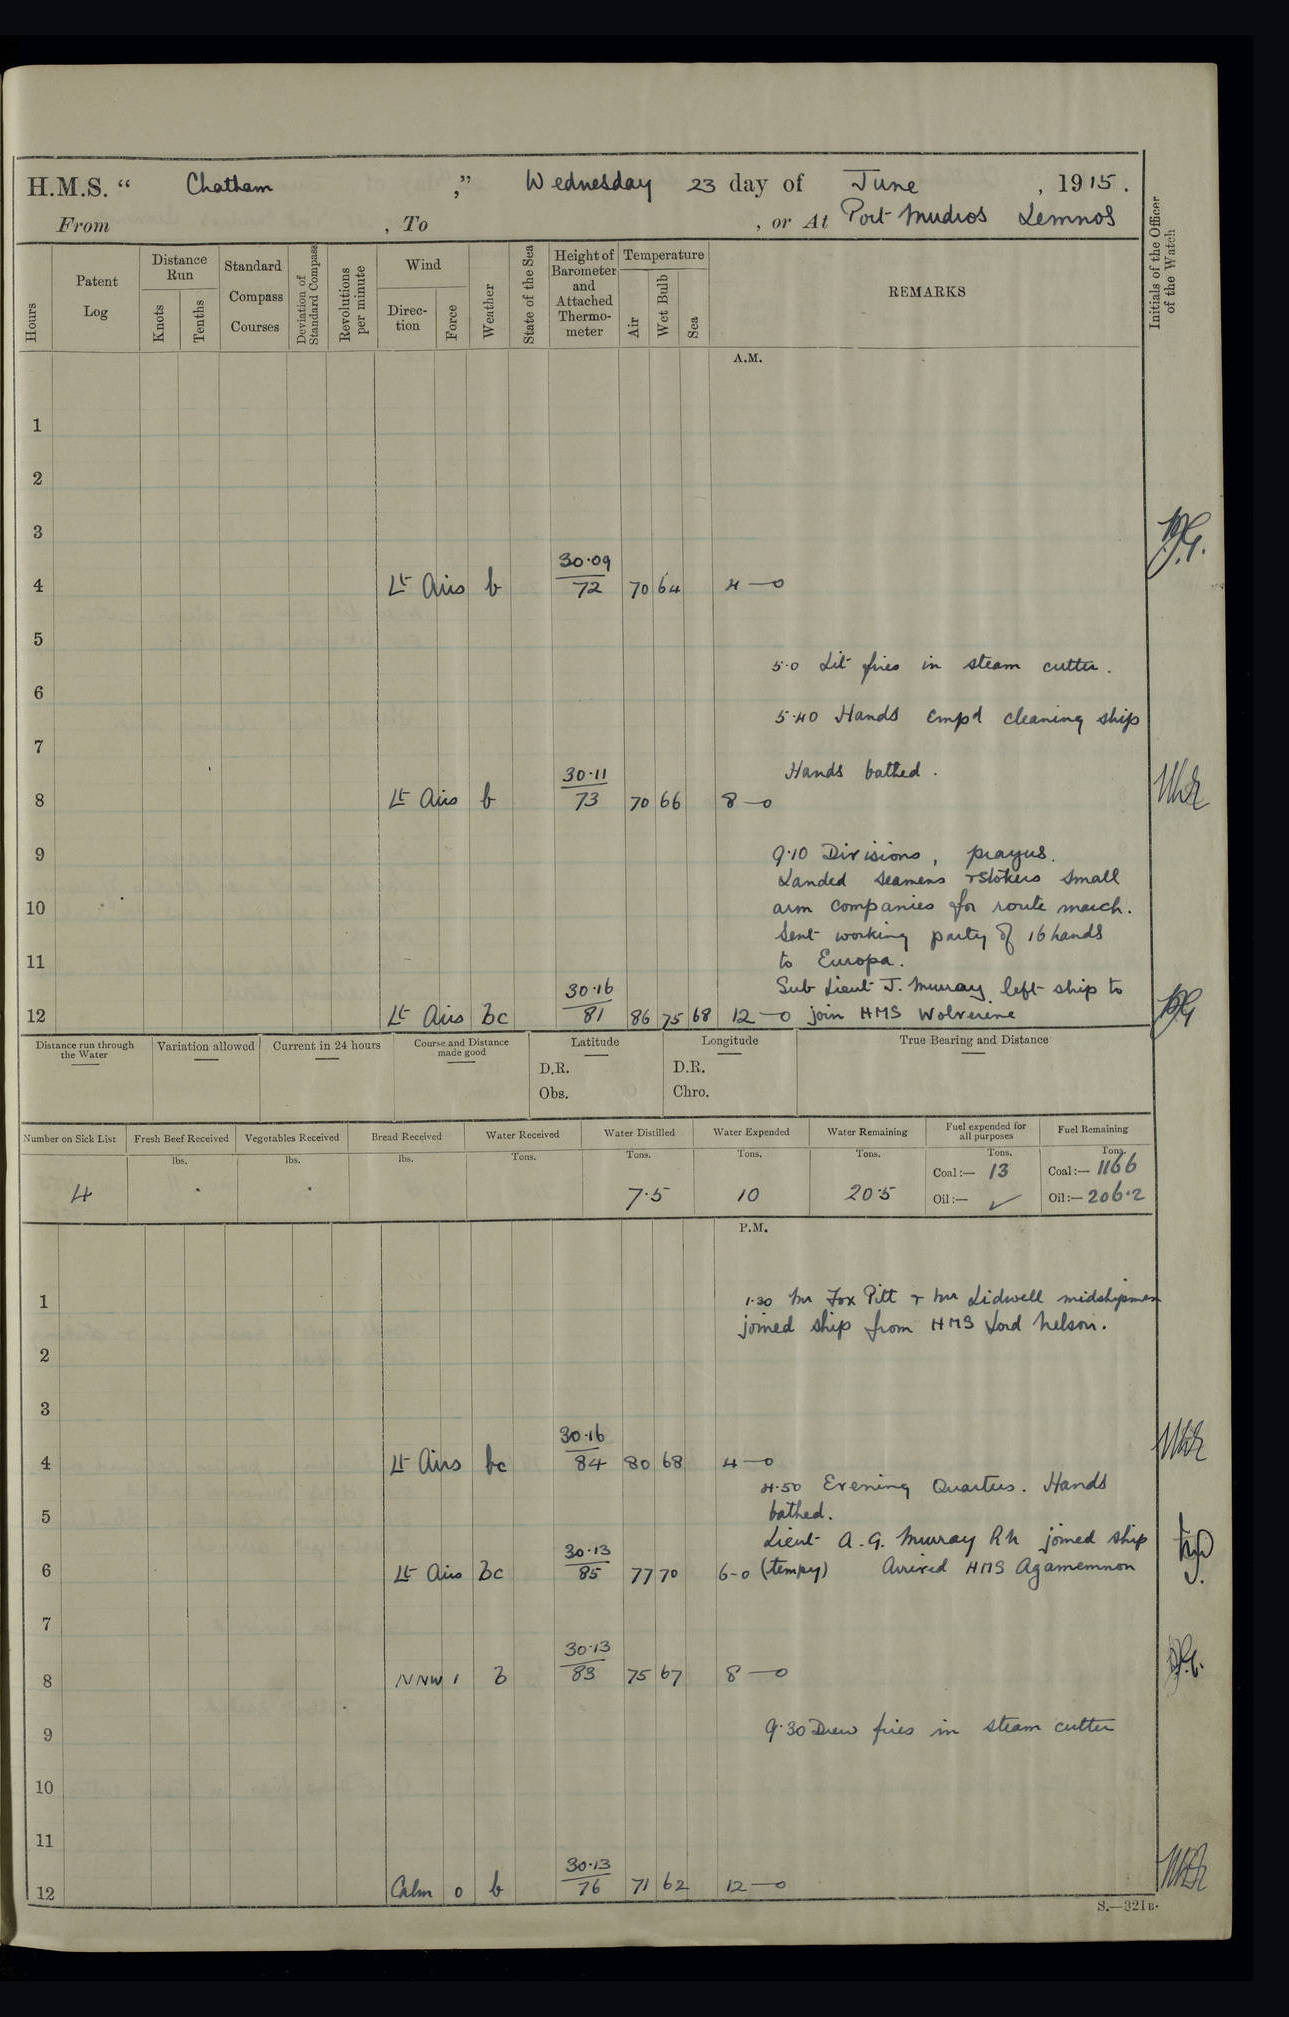 H.M.S. “ Chatham ,” Wednesday 23 day of June , 1915.
From , To , or At Port Mudros Lemnos
Hours
Patent Log
Distance Run
Knots
Tenths
Standard Compass Courses
Deviation of Standard Compass
Revolutions per minute
Wind
Direction
Force
Weather
State of the Sea
Height of Barometer and Attached Thermometer
Temperature
Air
Wet Bulb
Sea
REMARKS
Initials of the Officer of the Watch
A.M.
1
2
3
30·09
4 Lt Airs b 72 70 64 4—0
5
5·0 Lit fires in steam cutter.
6
5·40 Hands Empd cleaning ship
7
Hands bathed.
30·11
8 Lt Airs b 73 70 66 8—0
9 9·10 Divisions, prayers.
Landed seamens + stokers small
10 arm companies for route march.
Sent working party of 16 hands
11 to Europa.
30·16 Sub Lieut J. Murray left ship to
12 Lt Airs bc 81 86 75 68 12—0 join HMS Wolverine
Distance run through the Water
Variation allowed
Current in 24 hours
Course and Distance made good
Latitude
D.R.
Obs.
Longitude
D.R.
Chro.
True Bearing and Distance
Number on Sick List
4
Fresh Beef Received
lbs.
Vegetables Received
lbs.
Bread Received
lbs.
Water Received
Tons.
Water Distilled
Tons.
7·5
Water Expended
Tons.
10
Water Remaining
Tons.
20·5
Fuel expended for all purposes
Tons.
Coal:— 13
Oil:— ✓
Fuel Remaining
Tons.
Coal:— 1166
Oil:— 206·2
P.M.
1 1·30 Mr Fox Pitt + Mr Lidwell midshipmen
joined ship from HMS Lord Nelson.
2
3
30·16
4 Lt Airs bc 84 80 68 4—0
4·50 Evening Quarters. Hands
5 bathed.
30·13 Lieut A. G. Murray RN joined ship
6 Lt Airs bc 85 77 70 6-0 (tempy) Arrived HMS Agamemnon
7
30·13
8 NNW 1 b 83 75 67 8—0
9 9·30 Drew fires in steam cutter
10
11
30·13
12 Calm 0 b 76 71 62 12—0
S.—321B.